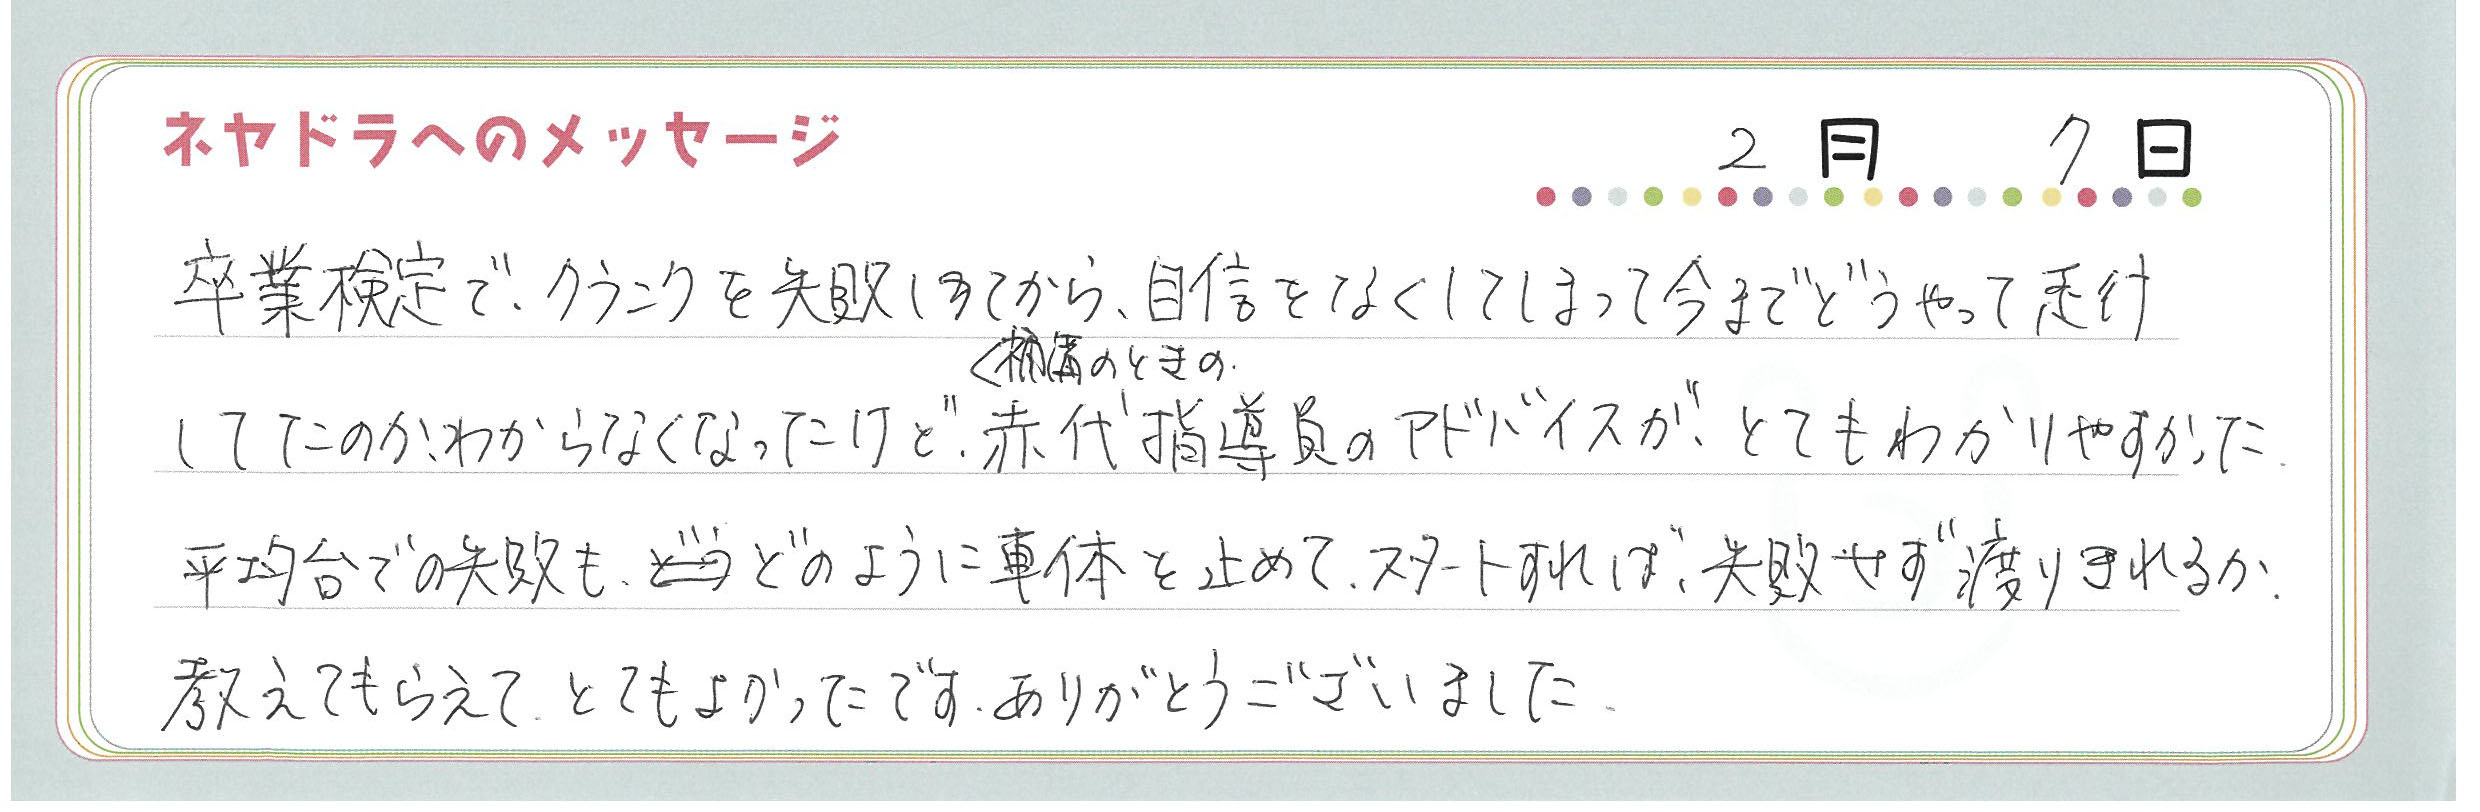 ネヤドラへのメッセージ
2月 7日
卒業検定で、クランクを失敗してから、自信をなくしてしまって今までどうやって走行
<補講のときの
してたのか、わからなくなったけど、赤代指導員のアドバイスが、とてもわかりやすかった
平均台での失敗も、どのように車体を止めて、スタートすれば、失敗せず渡りきれるか、
教えてもらえて、とてもよかったです。ありがとうございました。